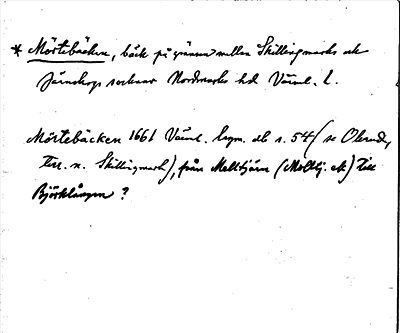 * Mörtebäcken, bäck på gränsen mellan Skillingmarks och
Järnskogs socknar Nordmarks hd Värml. l.
Mörtebäcken 1661 Värml. lagm. db s. 54 (se
terr. n. Skillingmark), från Melltjärn (Melltj. ek) till
Björklången ?